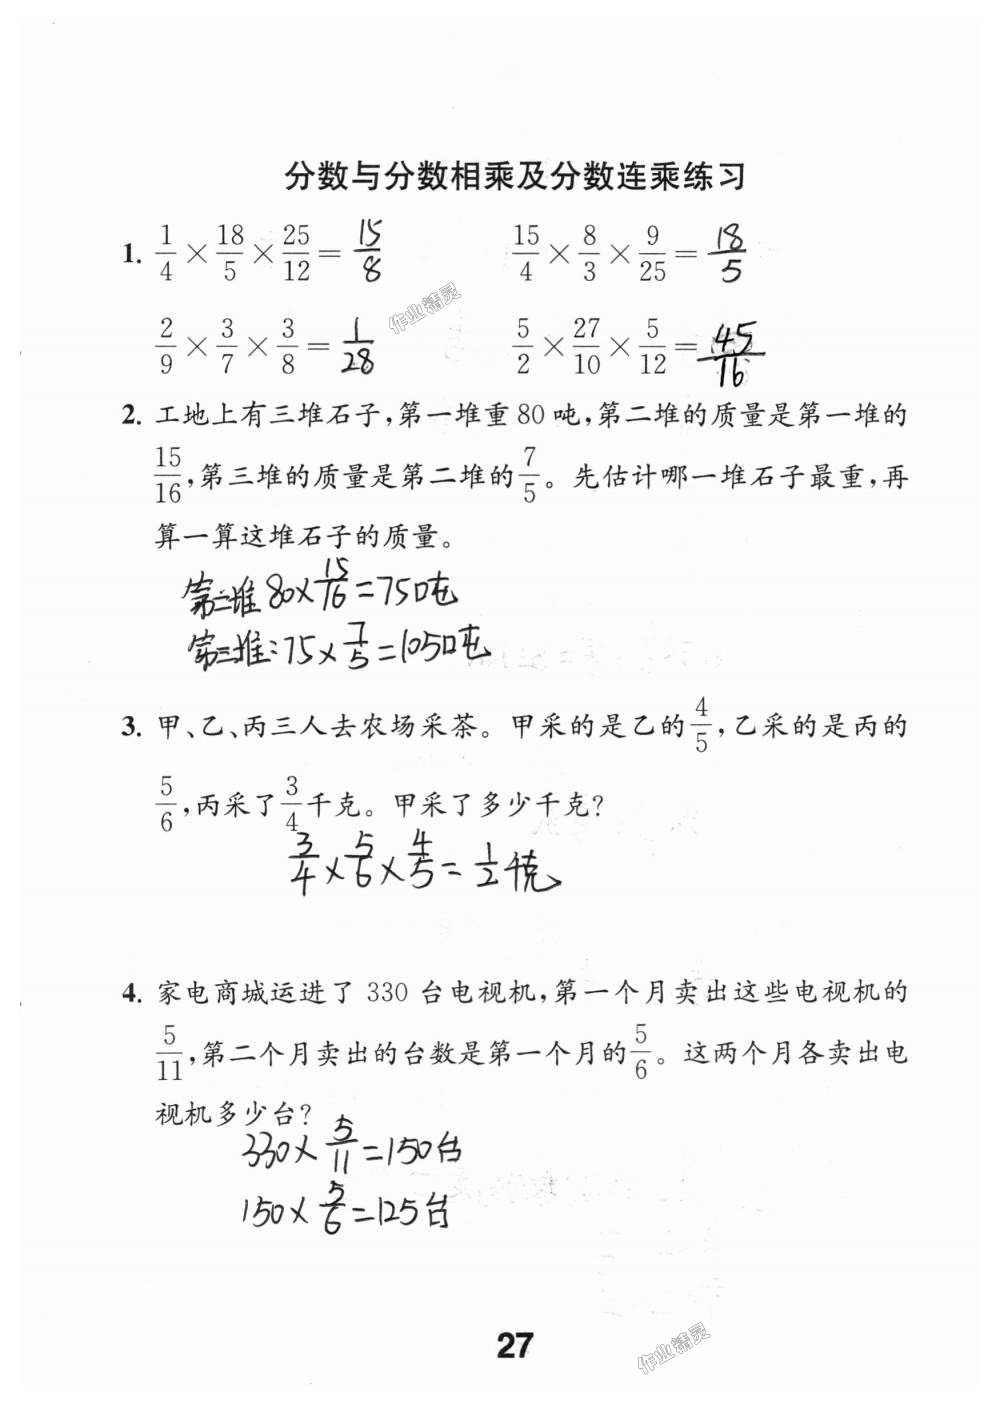 分数与分数相乘及分数连乘练习
1. 1/4 × 18/5 × 25/12 = 15/8　　15/4 × 8/3 × 9/25 = 18/5
2/9 × 3/7 × 3/8 = 1/28　　5/2 × 27/10 × 5/12 = 45/16
作业精灵
2. 工地上有三堆石子,第一堆重80吨,第二堆的质量是第一堆的
15/16,第三堆的质量是第二堆的7/5。先估计哪一堆石子最重,再
算一算这堆石子的质量。
第二堆 80×15/16=75吨
第三堆:75×7/5=105吨
3. 甲、乙、丙三人去农场采茶。甲采的是乙的4/5,乙采的是丙的
5/6,丙采了3/4千克。甲采了多少千克?
3/4×5/6×4/5=1/2千克
4. 家电商城运进了 330 台电视机,第一个月卖出这些电视机的
5/11,第二个月卖出的台数是第一个月的5/6。这两个月各卖出电
视机多少台?
330×5/11=150台
150×5/6=125台
27
作业精灵